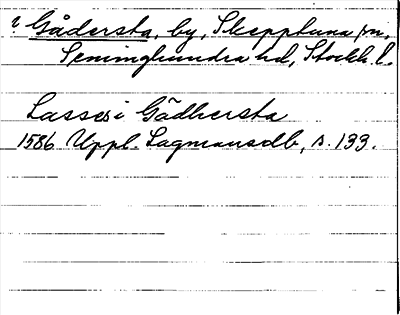 ? Gådersta, by, Skepptuna sn,
Seminghundra hd, Stockh. l.
Lasses i Gådhersta
1586 Uppl. Lagmansdb, s. 133.